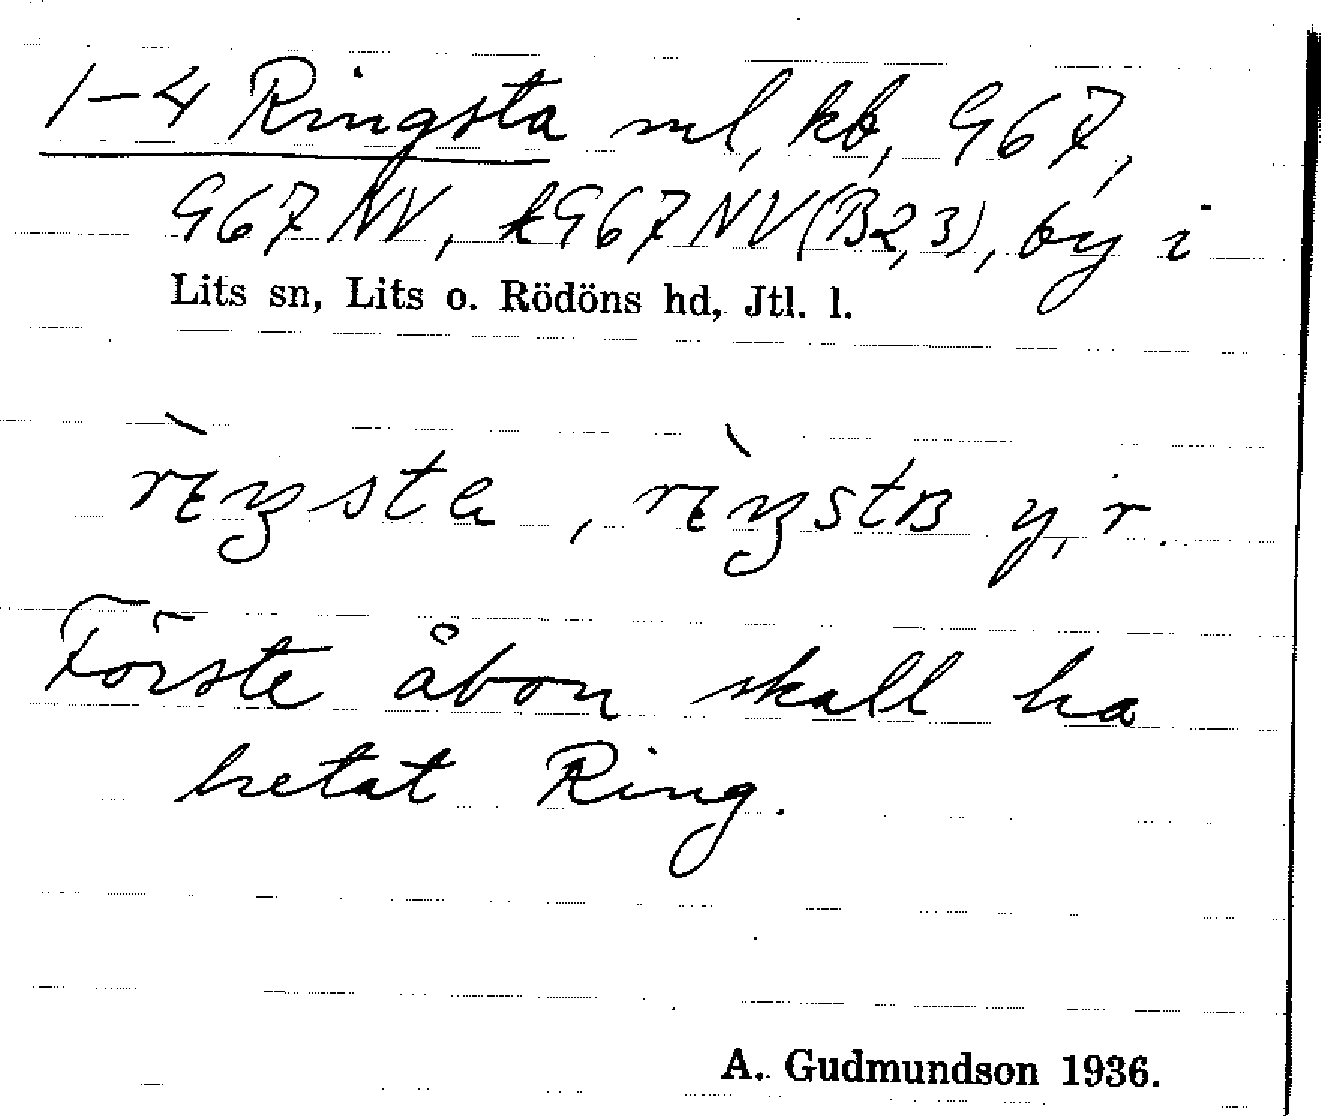 1-4 Ringsta ml, kb, G67,
G67NV, kG67NV(B2,3), by i
Lits sn, Lits o. Rödöns hd, Jtl. l.
y, r.
Förste åbon skall ha
hetat Ring.
A. Gudmundson 1936.